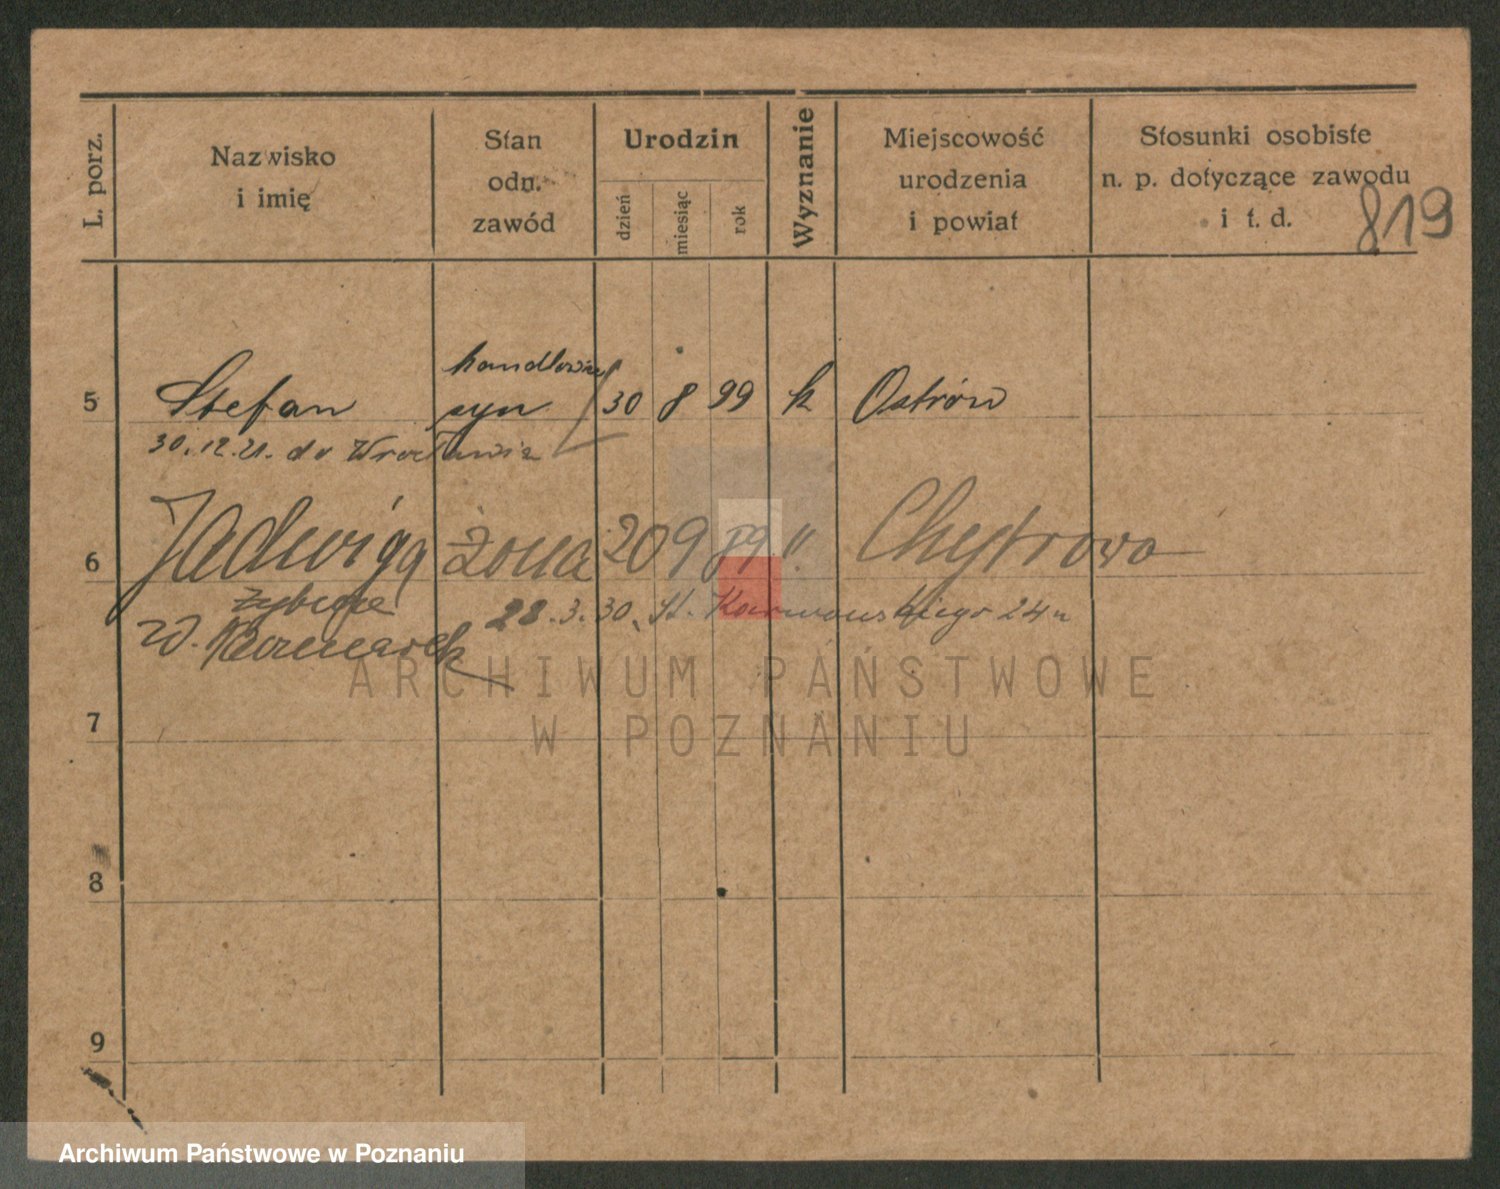 L. porz.
Nazwisko
i imię
Stan
odn.
zawód
Urodzin
dzień
miesiąc
rok
Wyznanie
Miejscowość
urodzenia
i powiat
Stosunki osobiste
n. p. dotyczące zawodu
i t. d.
819
handlowiec
5 Stefan syn 30 8 99 k Ostrów
30.12.21. do Wrocławia
6 Jadwiga żona 20 9 89 " Chytrowo
28.3.30. St. 24
W. Kaczmarek
7
8
9
ARCHIWUM PAŃSTWOWE
W POZNANIU
Archiwum Państwowe w Poznaniu